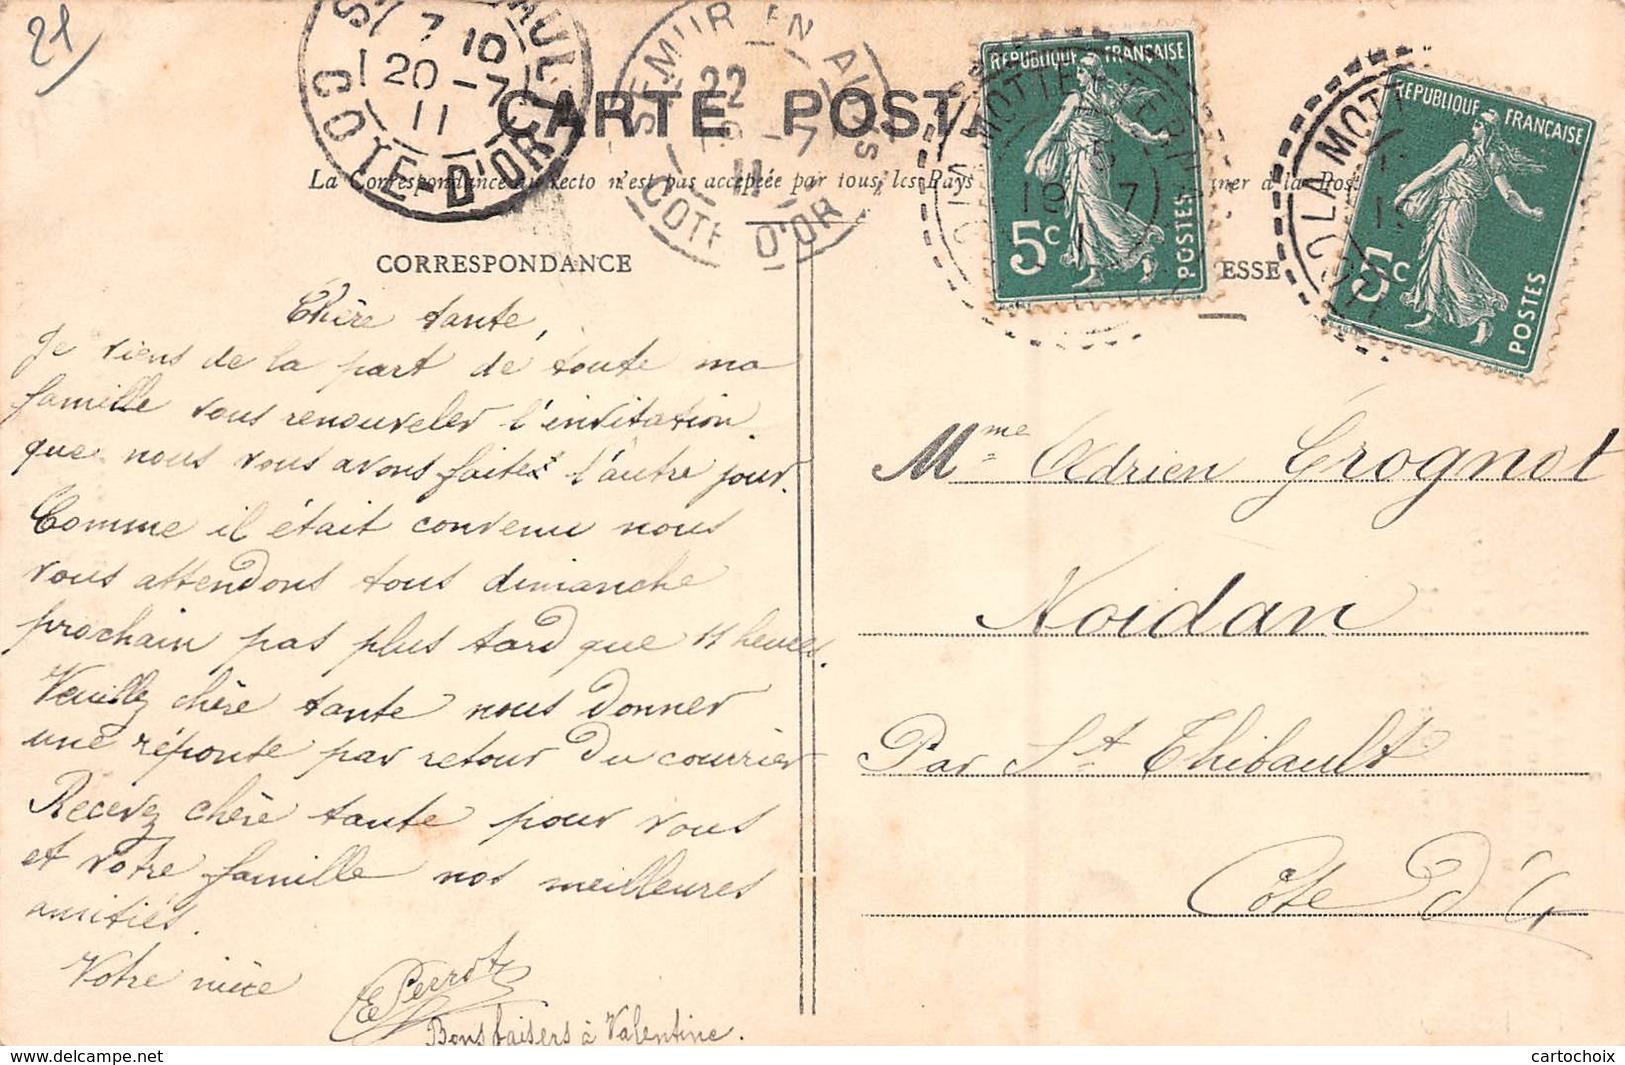 21
CARTE POSTA
La Correspondance au Recto n'est pas acceptée par tous les Pays
ner à la Pos
CORRESPONDANCE
ESSE
ST THIBAULT
7 10
20-7
11
COTE-D'OR
SEMUR EN AUXOIS
22
-7
11
COTE D'OR
LA MOTTE-TERN
19 7
REPUBLIQUE FRANÇAISE
5c
POSTES
LA MOTT
REPUBLIQUE FRANÇAISE
5c
POSTES
Chère tante,
Je viens de la part de toute ma
famille vous renouveler l'invitation
que nous vous avons faites l'autre jour.
Comme il était convenu nous
vous attendons tous dimanche
prochain pas plus tard que 11 heures.
Veuillez chère tante nous donner
une réponse par retour du courrier
Recevez chère tante pour vous
et votre famille nos meilleures
amitiés.
Votre nièce
E Perrot
Bons baisers à Valentine.
Mme Adrien Grognot
Noidan
Par St Thibault
Côte d'Or
mardi 26 mai 2020 12:47
cartochoix